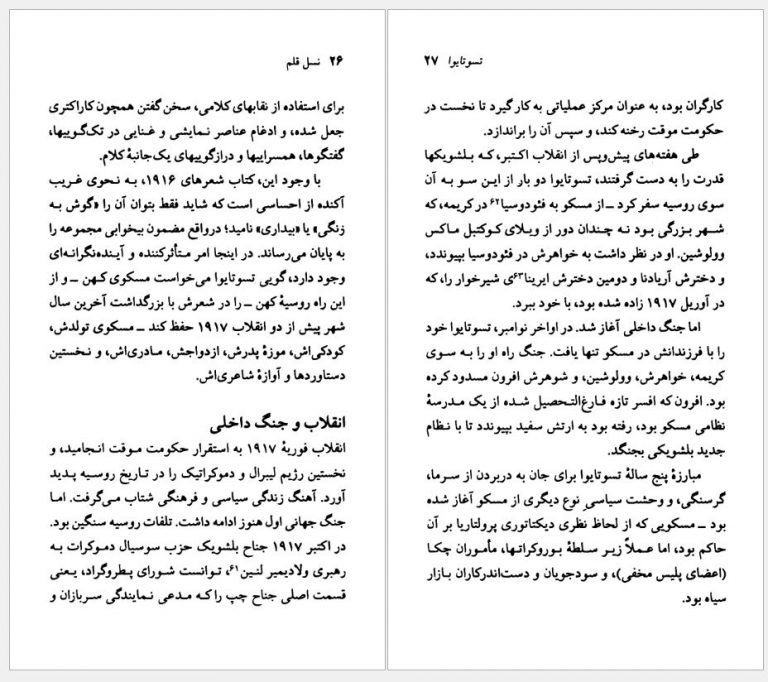 ۲۶ نسل قلم
برای استفاده از نقابهای کلامی، سخن گفتن همچون کاراکتری
جعل شده، و ادغام عناصر نمایشی و غنایی در تک‌گوییها،
گفتگوها، همسراییها و درازگوییهای یک‌جانبهٔ کلام.
با وجود این، کتاب شعرهای ۱۹۱۶، به نحوی غریب
آکنده از احساسی است که شاید فقط بتوان آن را «گوش به
زنگی» یا «بیداری» نامید؛ درواقع مضمون بیخوابی مجموعه را
به پایان می‌رساند. در اینجا امر متأثرکننده و آینده‌نگرانه‌ای
وجود دارد، گویی تسوتایوا می‌خواست مسکوی کهن ــ و از
این راه روسیهٔ کهن ــ را در شعرش با بزرگداشت آخرین سال
شهر پیش از دو انقلاب ۱۹۱۷ حفظ کند ــ مسکوی تولدش،
کودکی‌اش، موزهٔ پدرش، ازدواجش، مادری‌اش، و نخستین
دستاوردها و آوازهٔ شاعری‌اش.
انقلاب و جنگ داخلی
انقلاب فوریهٔ ۱۹۱۷ به استقرار حکومت موقت انجامید، و
نخستین رژیم لیبرال و دموکراتیک را در تاریخ روسیه پدید
آورد. آهنگ زندگی سیاسی و فرهنگی شتاب می‌گرفت. اما
جنگ جهانی اول هنوز ادامه داشت. تلفات روسیه سنگین بود.
در اکتبر ۱۹۱۷ جناح بلشویک حزب سوسیال دموکرات به
رهبری ولادیمیر لنین۶۱، توانست شورای پطروگراد، یعنی
قسمت اصلی جناح چپ را که مدعی نمایندگی سربازان و
تسوتایوا ۲۷
کارگران بود، به عنوان مرکز عملیاتی به کار گیرد تا نخست در
حکومت موقت رخنه کند، و سپس آن را براندازد.
طی هفته‌های پیش‌وپس از انقلاب اکتبر، که بلشویکها
قدرت را به دست گرفتند، تسوتایوا دو بار از این سو به آن
سوی روسیه سفر کرد ــ از مسکو به فئودوسیا۶۲ در کریمه، که
شهر بزرگی بود نه چندان دور از ویلای کوکتبل ماکس
وولوشین. او در نظر داشت به خواهرش در فئودوسیا بپیوندد،
و دخترش آریادنا و دومین دخترش ایرینا۶۳ی شیرخوار را، که
در آوریل ۱۹۱۷ زاده شده بود، با خود ببرد.
اما جنگ داخلی آغاز شد. در اواخر نوامبر، تسوتایوا خود
را با فرزندانش در مسکو تنها یافت. جنگ راه او را به سوی
کریمه، خواهرش، وولوشین، و شوهرش افرون مسدود کرده
بود. افرون که افسر تازه فارغ‌التحصیل شده از یک مدرسهٔ
نظامی مسکو بود، رفته بود به ارتش سفید بپیوندد تا با نظام
جدید بلشویکی بجنگد.
مبارزهٔ پنج سالهٔ تسوتایوا برای جان به دربردن از سرما،
گرسنگی، و وحشت سیاسیِ نوع دیگری از مسکو آغاز شده
بود ــ مسکویی که از لحاظ نظری دیکتاتوری پرولتاریا بر آن
حاکم بود، اما عملاً زیر سلطهٔ بوروکراتها، مأموران چکا
(اعضای پلیس مخفی)، و سودجویان و دست‌اندرکاران بازار
سیاه بود.